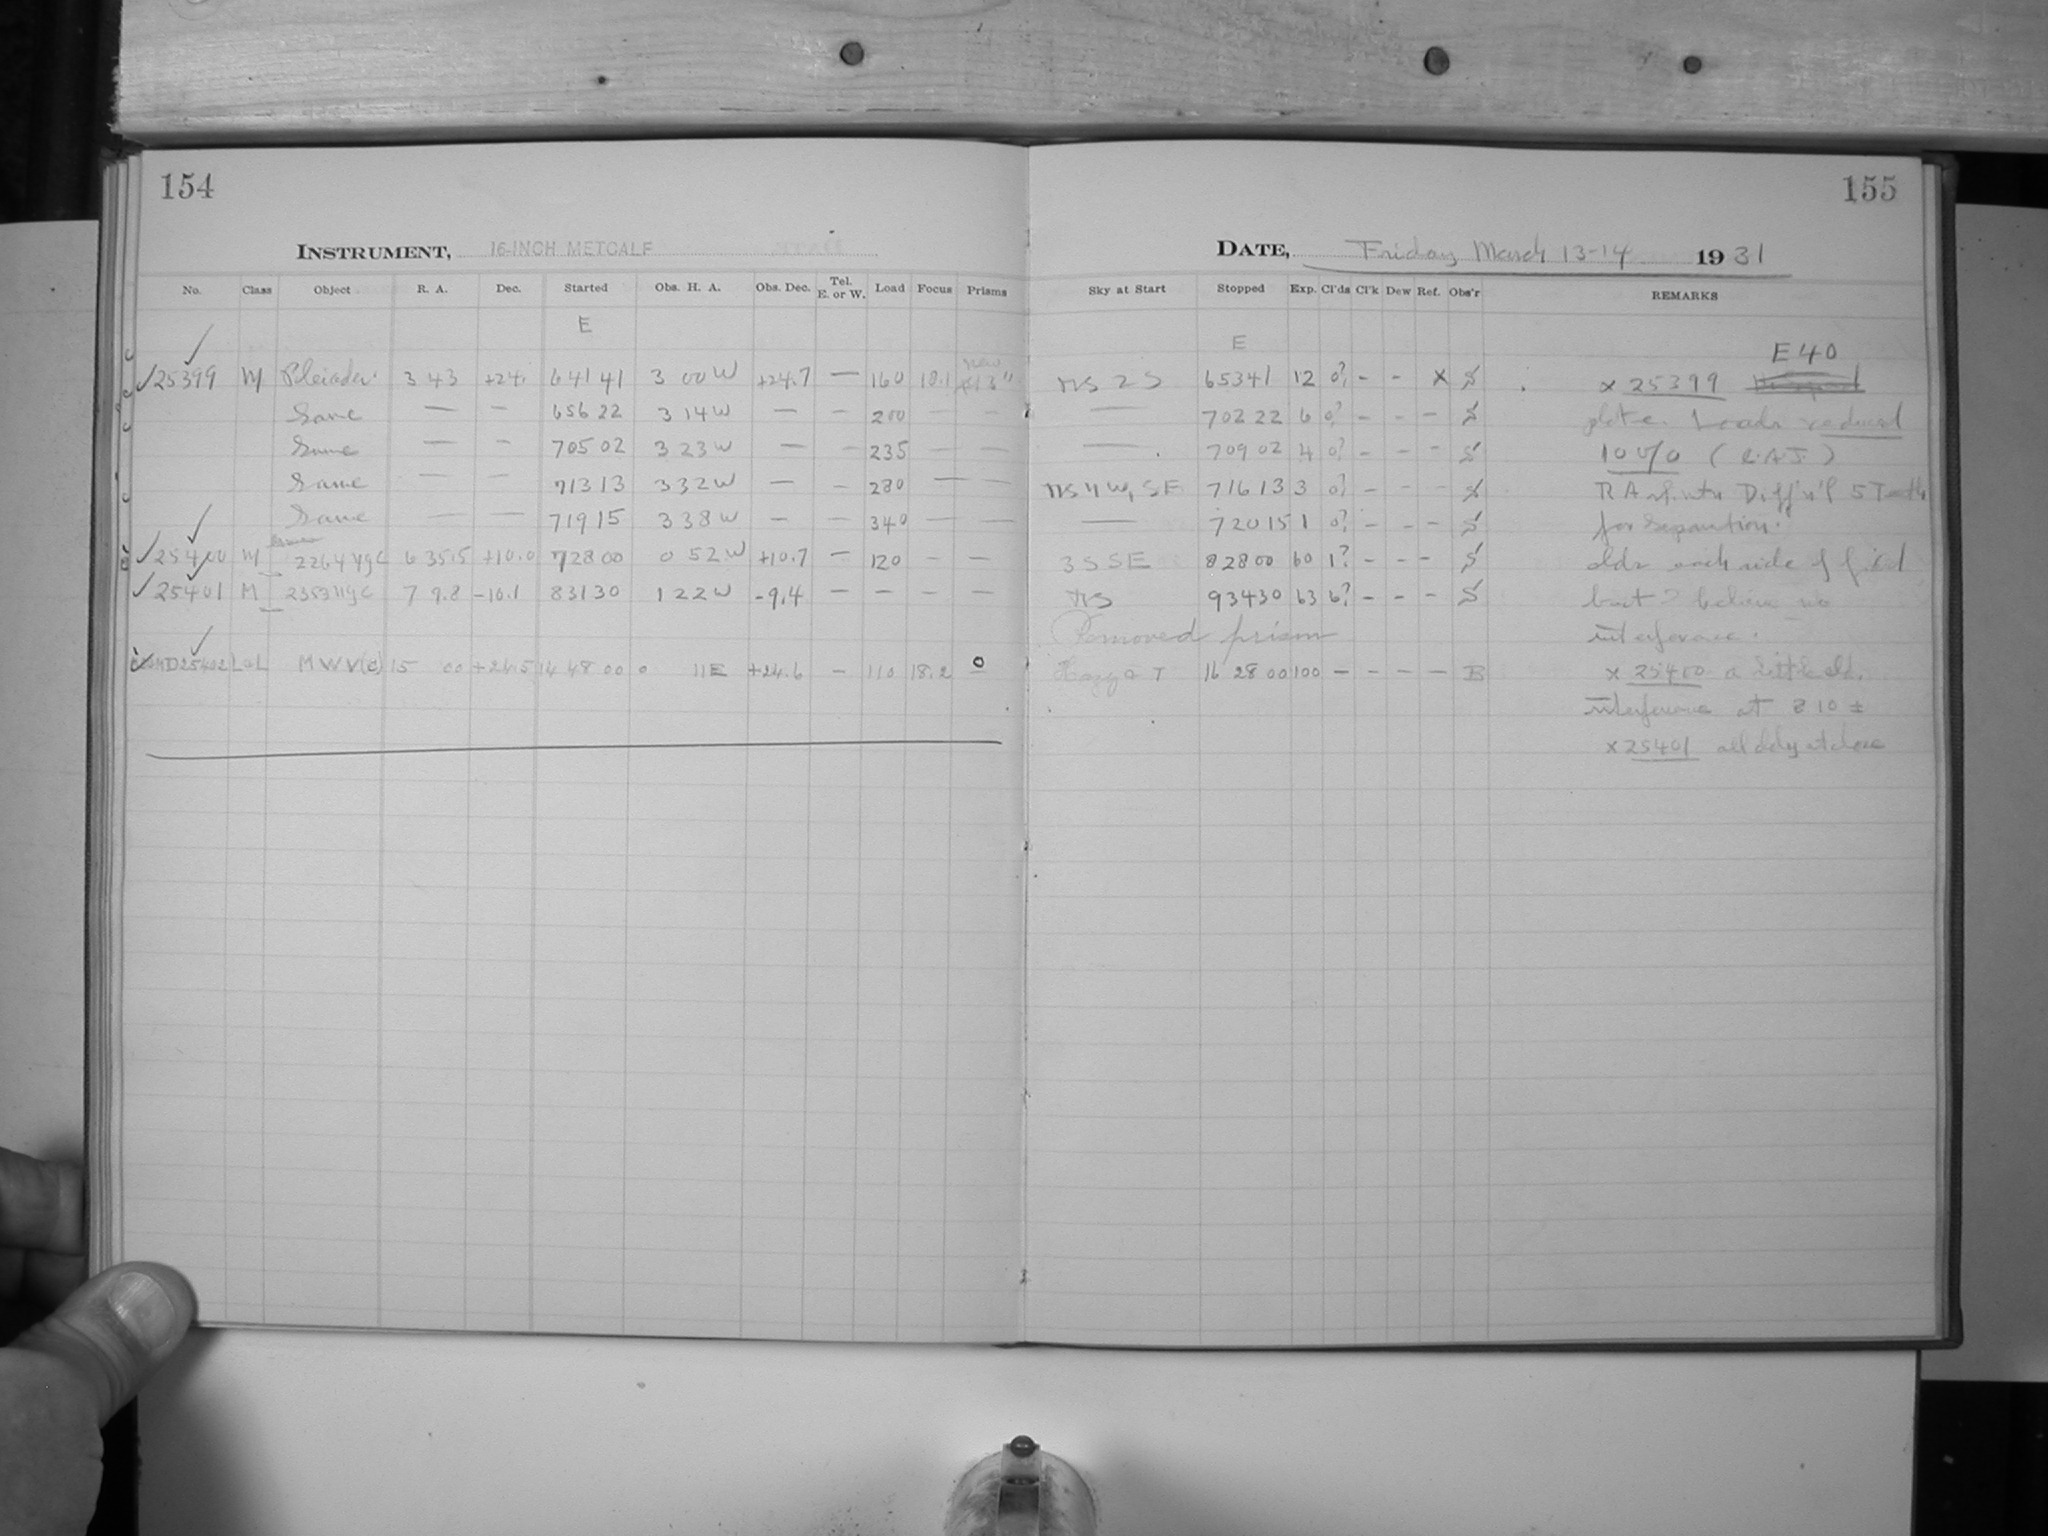 154
INSTRUMENT, 16-INCH METCALF
No. Class Object R. A. Dec. Started Obs. H. A. Obs. Dec. Tel. E. or W. Load Focus Prisms
E
✓25399 M Pleiades 3 43 +24. 6 41 41 3 00 W +24.7 — 160 18.1
Same — — 6 56 22 3 14 W — — 200 — —
Same — — 7 05 02 3 23 W — — 235 — —
Same — — 7 13 13 3 32 W — — 280 — —
Same — — 7 19 15 3 38 W — — 340 — —
✓25400 M 2264 NGC 6 35.5 +10.0 7 28 00 0 52 W +10.7 — 120 — —
✓25401 M 2353 NGC 7 9.8 -10.1 8 31 30 1 22 W -9.4 — — — —
25402 L&L MWV(c) 15 00 +24.5 14 48 00 0 11 E +24.6 — 110 18.2 0
155
DATE, Friday March 13-14 1931
Sky at Start Stopped Exp. Cl'ds Cl'k Dew Ref. Obs'r REMARKS
E
E 40
6 53 41 12 0? - - X S x 25399
— 7 02 22 6 0? - - - S plate. Loads reduced
— 7 09 02 4 0? - - - S 10 %
7 16 13 3 0? - - - S R A Diff'n'l 5 Teeth
— 7 20 15 1 0? - - - S for separation.
3 S SE 8 28 00 60 1? - - - S clds each side of field
9 34 30 63 6? - - - S but I believe no
Removed prism interference.
Hazy 16 28 00 100 — - - — B x 25400 a little cld.
interference at 8 10 ±
x 25401 all cldy at close